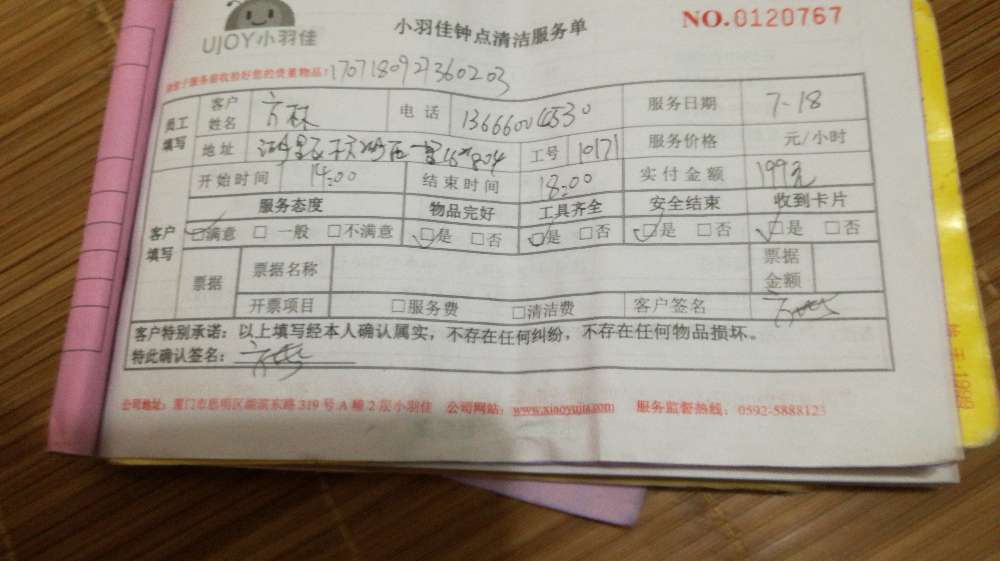 UJOY小羽佳
小羽佳钟点清洁服务单
NO.0120767
170718092360203
员工填写 客户姓名 方林 电话 服务日期 7-18
地址 工号 10171 服务价格 元/小时
开始时间 14:00 结束时间 18:00 实付金额 199元
客户填写 服务态度 物品完好 工具齐全 安全结束 收到卡片
☑满意 □一般 □不满意 ☑是 □否 ☑是 □否 ☑是 □否 ☑是 □否
票据 票据名称 票据金额
开票项目 □服务费 □清洁费 客户签名
客户特别承诺：以上填写经本人确认属实，不存在任何纠纷，不存在任何物品损坏。
特此确认签名：
公司地址：厦门市思明区湖滨东路319号A幢2层小羽佳 公司网站：www.xiaoyujia.com 服务监督热线：0592-5888123